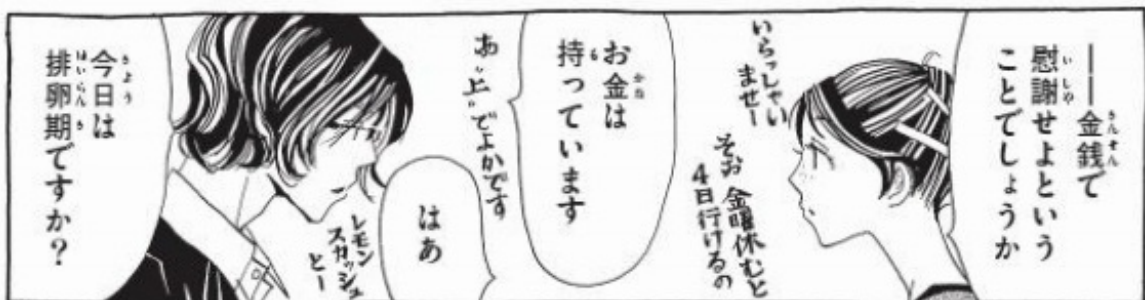 ――金銭で
慰謝せよという
ことでしょうか
いらっしゃい
ませー
そお 金曜休むと
4日行けるの
お金は
持っています
あ〝上〟でよかです
はあ
レモン
スカッシュ
とー
今日は
排卵期ですか？